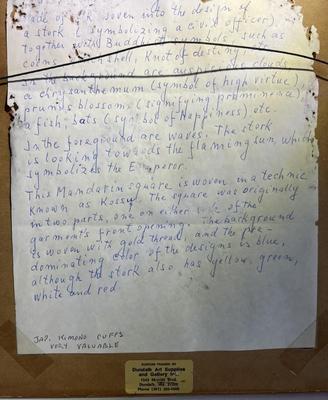 made of silk woven into the design of
a stork (symbolizing a civil officer),
together with Buddhist symbols such as
coins, shell, Knot of destiny, etc.
In the background are auspicious clouds,
a chrysanthemum (symbol of high virtue),
prunus blossoms (signifying prominence),
a fish, bats (symbol of Happiness) etc.
In the foreground are waves. The stork
is looking towards the flaming sun, which
symbolizes the Emperor.
This Mandarin square is woven in a technic
known as Kossu. The square was originally
in two parts, one on either side of the
garment's front opening. The background
is woven with gold thread, and the pre-
dominating color of the designs is blue,
although the stork also has yellow, green,
white and red
JAP. KIMONO CUFFS
VERY VALUABLE
CUSTOM FRAMED BY
Dundalk Art Supplies
and Gallery
Blvd.
Dundalk, Md.
Phone